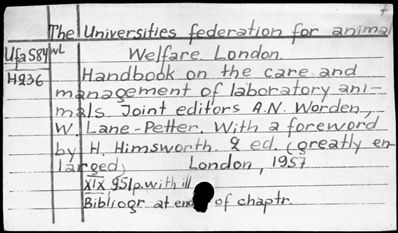 7
The Universities federation for animal
Ufa584 WL Welfare. London.
H236 Handbook on the care and
management of laboratory ani-
mals. Joint editors A.N. Worden,
W. Lane-Petter. With a foreword
by H. Himsworth. 2 ed. (greatly en
larged) London, 1957
XIX, 951p. with ill
Bibliogr at end of chaptr.